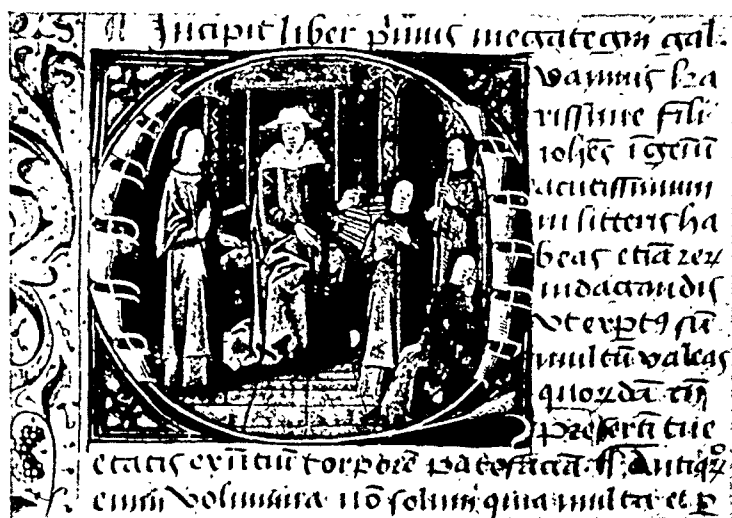 Incipit liber p̄imus megategni gal.
vamuis ka
rissime fili
ioh̄es īgeniū
acutissimum
in litteris ha
beas etiā reꝝ
indagandis
vt exꝑtꝰ
multū valeas
quoꝝdā tn̄
p̄sertī tue
etatis exn̄tiū torporē Antiqͦꝝ
enim volumina nō solum quia multa et ꝑ